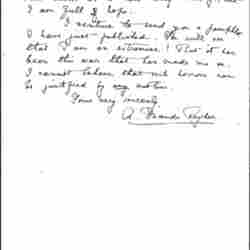 I am full of hope.
I venture to send you a pamphlet
I have just published. You will see
that I am an extremist. But it has
been the war that has made me so.
I cannot believe that such horrors can
be justified by any nation.
Yours very sincerely,
A. Maude Royden